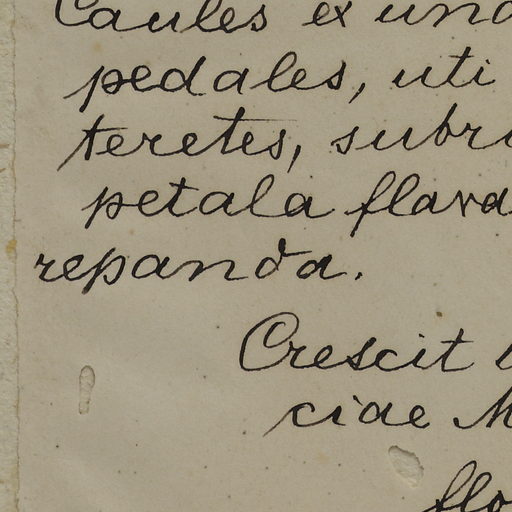 Caules ex una
pedales, uti
teretes, subru
petala flava
repanda.
Crescit
ciae M
flo